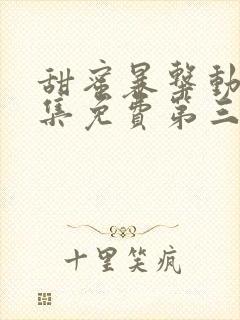 甜蜜暴击动
集免费第三
十里笑疯